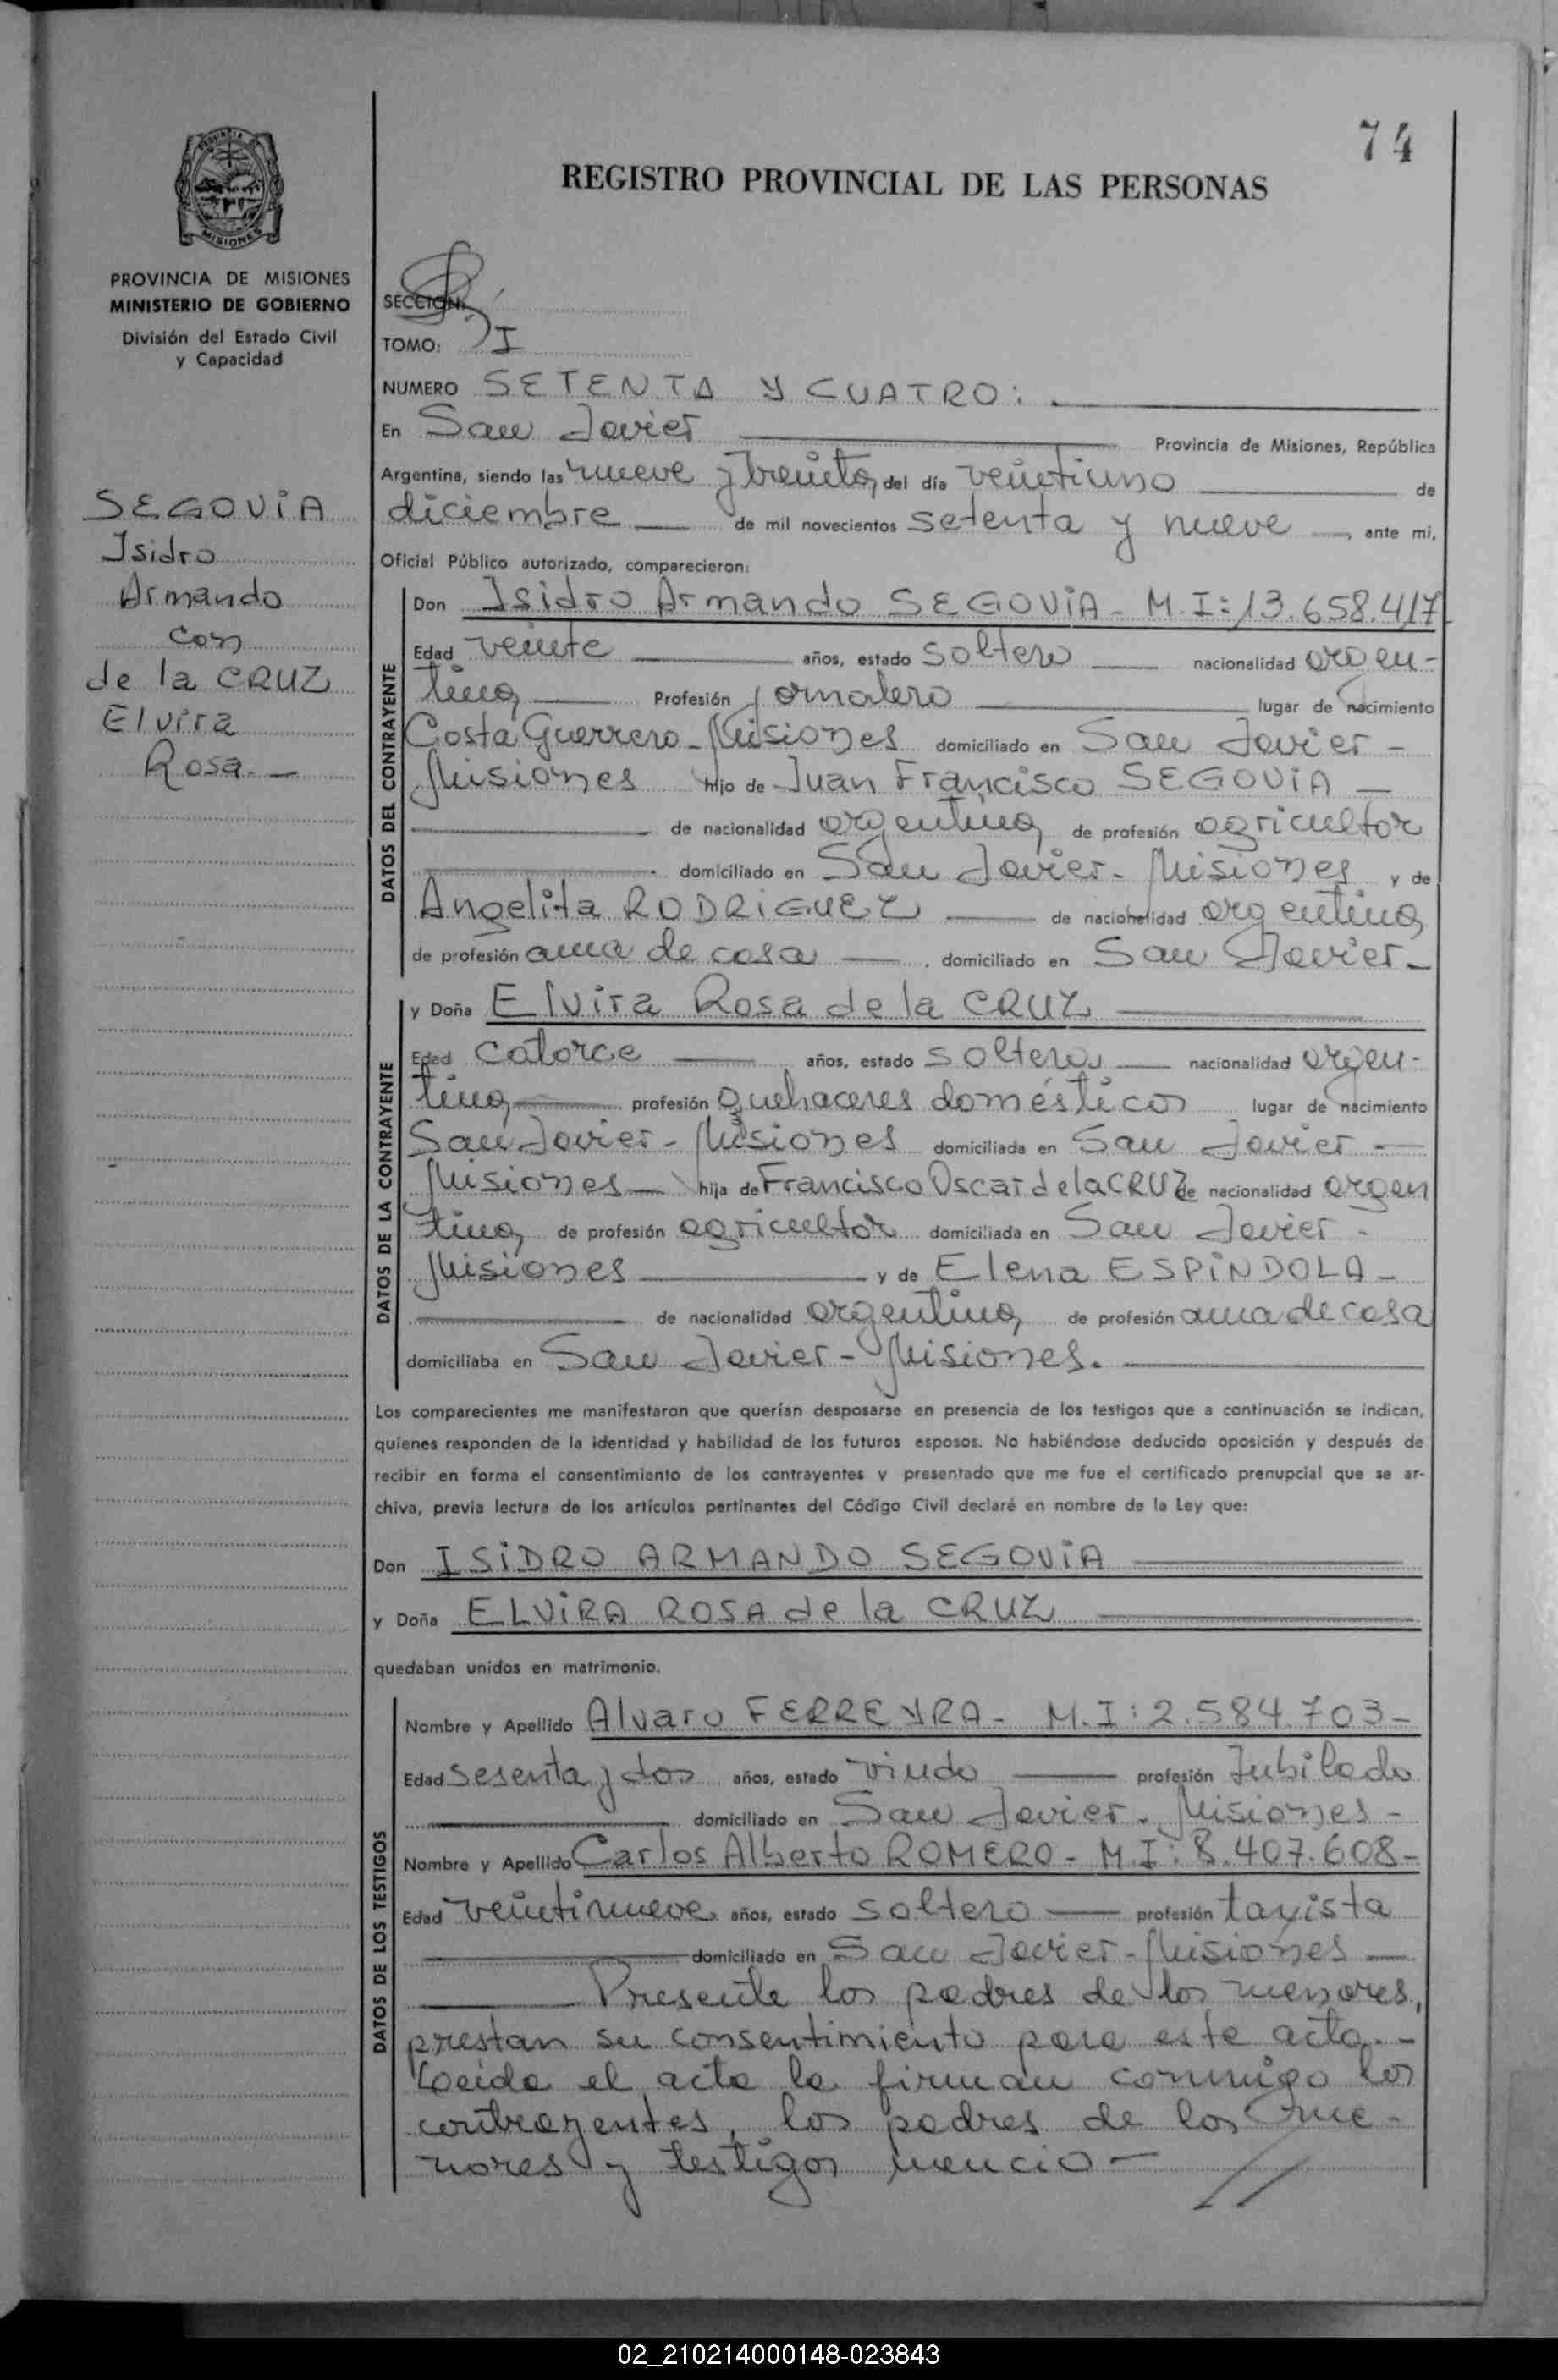 74
REGISTRO PROVINCIAL DE LAS PERSONAS
PROVINCIA
MISIONES
PROVINCIA DE MISIONES
MINISTERIO DE GOBIERNO
División del Estado Civil
y Capacidad
SEGOVIA
Isidro
Armando
con
de la CRUZ
Elvira
Rosa.-
SECCION:
TOMO: I
NUMERO SETENTA Y CUATRO:.
En San Javier Provincia de Misiones, República
Argentina, siendo las nueve y treinta, del día veintiuno de
diciembre de mil novecientos setenta y nueve, ante mi,
Oficial Público autorizado, comparecieron:
DATOS DEL CONTRAYENTE
Don Isidro Armando SEGOVIA - M.I:13.658.417
Edad veinte años, estado soltero nacionalidad argen-
tina Profesión jornalero lugar de nacimiento
Costa Guerrero - Misiones domiciliado en San Javier -
Misiones hijo de Juan Francisco SEGOVIA -
de nacionalidad argentina de profesión agricultor
domiciliado en San Javier - Misiones y de
Angelita RODRIGUEZ de nacionalidad argentina
de profesión ama de casa domiciliado en San Javier -
DATOS DE LA CONTRAYENTE
y Doña Elvira Rosa de la CRUZ
Edad catorce años, estado soltera nacionalidad argen-
tina profesión quehaceres domésticos lugar de nacimiento
San Javier - Misiones domiciliada en San Javier -
Misiones - hija de Francisco Oscar de la CRUZ de nacionalidad argen
tina, de profesión agricultor domiciliada en San Javier -
Misiones y de Elena ESPINDOLA -
de nacionalidad argentina, de profesión ama de casa
domiciliaba en San Javier - Misiones.
Los comparecientes me manifestaron que querían desposarse en presencia de los testigos que a continuación se indican,
quienes responden de la identidad y habilidad de los futuros esposos. No habiéndose deducido oposición y después de
recibir en forma el consentimiento de los contrayentes y presentado que me fue el certificado prenupcial que se ar-
chiva, previa lectura de los artículos pertinentes del Código Civil declaré en nombre de la Ley que:
Don ISIDRO ARMANDO SEGOVIA
y Doña ELVIRA ROSA de la CRUZ
quedaban unidos en matrimonio.
DATOS DE LOS TESTIGOS
Nombre y Apellido Alvaro FERREYRA - M.I:2.584.703-
Edad sesenta y dos años, estado viudo profesión Jubilado
domiciliado en San Javier - Misiones -
Nombre y Apellido Carlos Alberto ROMERO - M.I:8.407.608-
Edad veintinueve años, estado soltero profesión taxista
domiciliado en San Javier - Misiones
Presente los padres de los menores,
prestan su consentimiento para este acto.-
Leida el acta la firman conmigo los
contrayentes, los padres de los me-
nores y testigos mencio- //
02_210214000148-023843